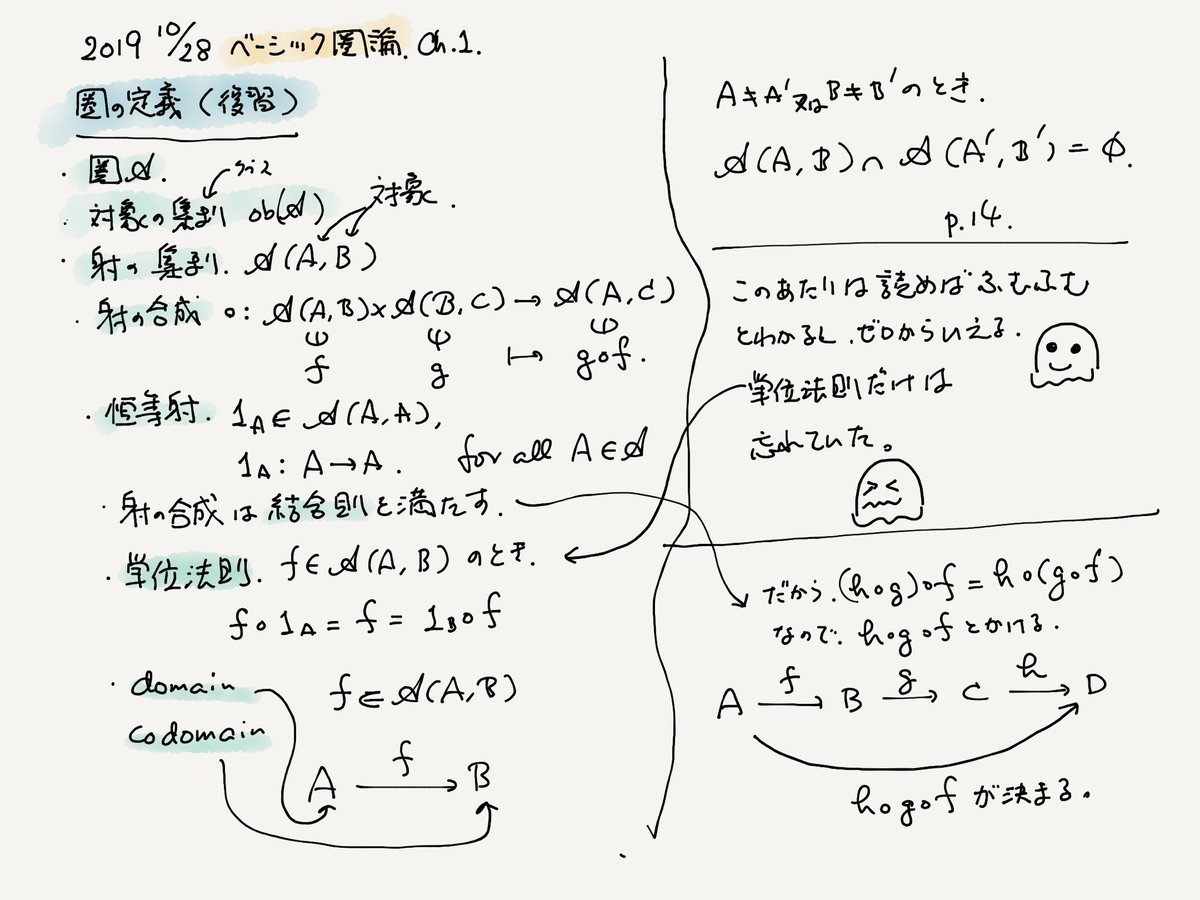 2019 10/28 ベーシック圏論. Ch.1.
圏の定義 (復習)
・圏𝒜.
クラス
・対象の集まり ob(𝒜)
対象.
・射の集まり. 𝒜(A, B)
・射の合成 ∘: 𝒜(A,B)×𝒜(B,C)→𝒜(A,C)
ψ ψ ψ
f g ↦ g∘f.
・恒等射. 1_A ∈ 𝒜(A,A),
1_A: A→A. for all A∈𝒜
・射の合成は結合則を満たす.
・学位法則. f∈𝒜(A,B) のとき.
f∘1_A = f = 1_B∘f
・domain f∈𝒜(A,B)
codomain
f
A → B
A≠A' 又はB≠B' のとき.
𝒜(A,B)∩𝒜(A',B') = ∅.
p.14.
このあたりは読めばふむふむ
とわかるし、ゼロからいえる.
学位法則だけは
忘れていた。
だから. (h∘g)∘f = h∘(g∘f)
なので. h∘g∘f とかける.
f g h
A → B → C → D
h∘g∘f が決まる。